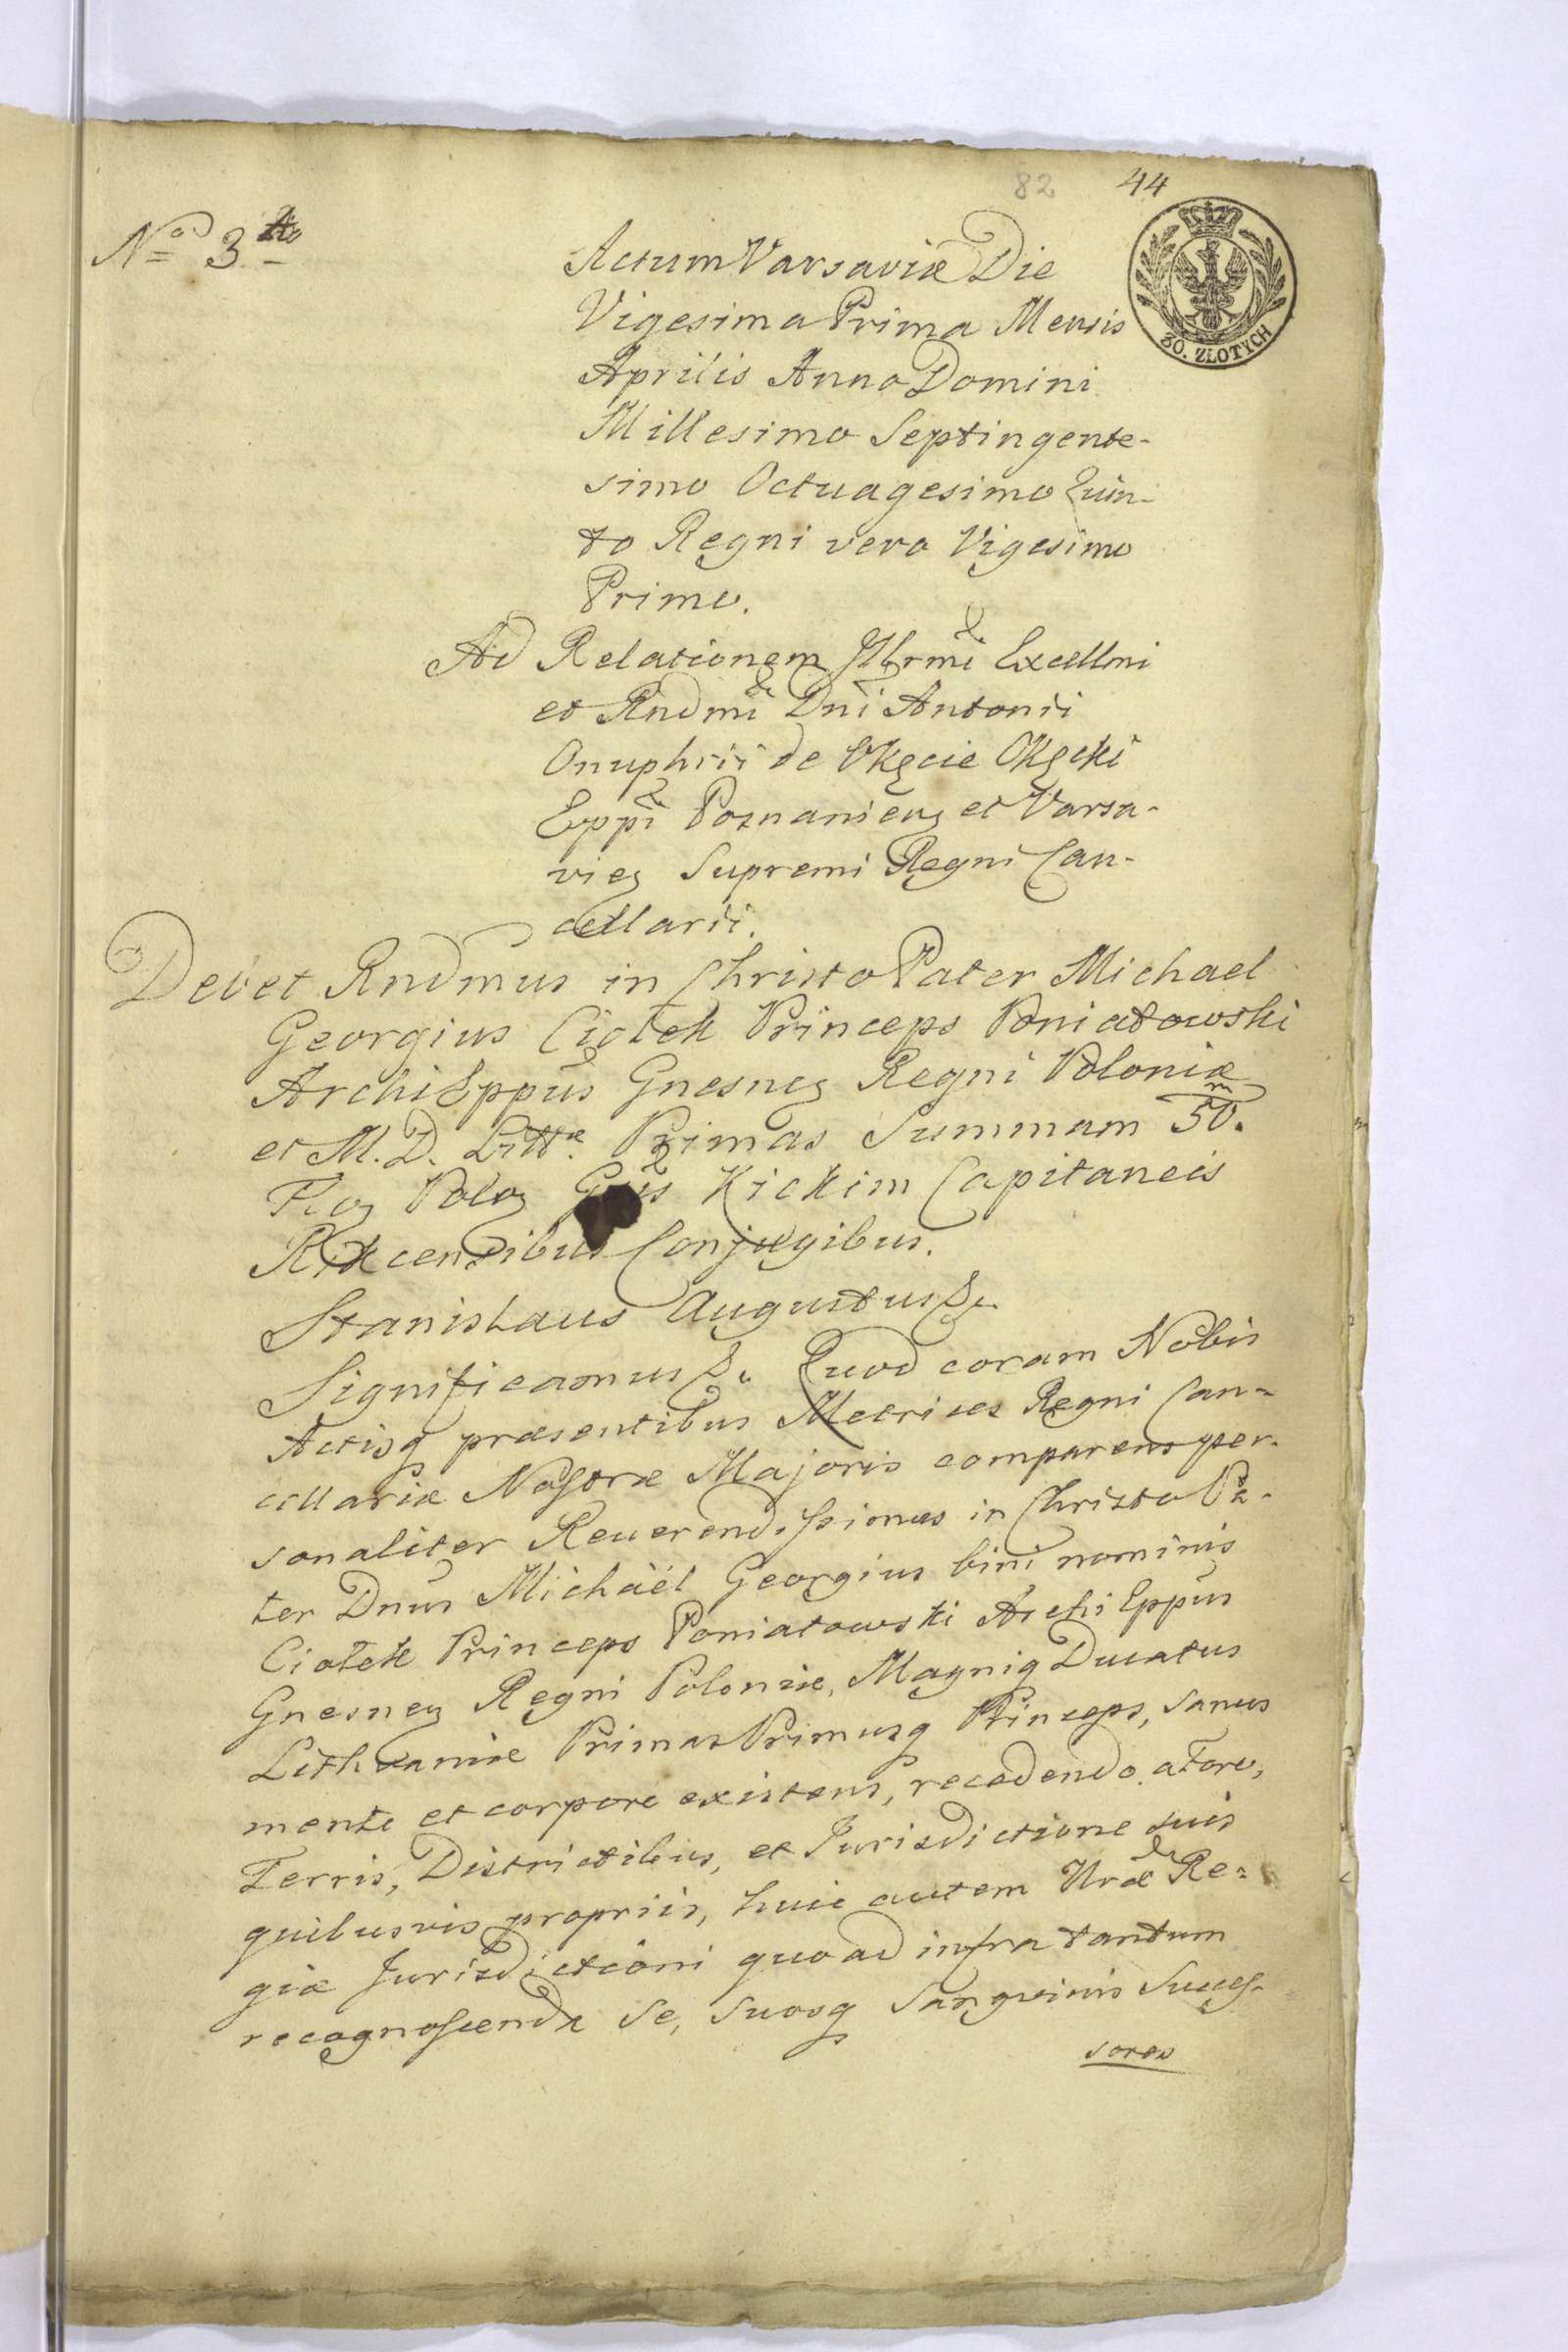 82 44
No 3tio
Actum Varsaviæ Die
Vigesima Prima Mensis
Aprilis Anno Domini
Millesimo Septingente-
simo Octuagesimo Quin-
to Regni vero Vigesimo
Primo.
30. ZŁOTYCH
Ad Relationem Illrmi Excellmi
et Rndmi Dni Antonii
Onuphrii de Okęcie Okęcki
Eppi Poznanieng et Varsa-
vieg Supremi Regni Can-
cellarii.
Debet Rndmus in Christo Pater Michael
Georgius Ciołek Princeps Poniatowski
ArchiEppus Gnesneg Regni Poloniæ
et M. D. Littæ. Primas Summam 50.m
Flog Polog Kickim Capitaneis
Conjugibus.
Stanislaus Augustus &c.
Significamus &c. Quod coram Nobis
Actisq præsentibus Metrices Regni Can-
cellariæ Nostræ Majoris comparens per-
sonaliter Reuerendissimus in Christo Pa-
ter Dnus Michaël Georgius bini nominis
Ciołek Princeps Poniatowski ArchiEppus
Gnesneg Regni Poloniæ, Magniq Ducatus
Lithvaniæ Primas Primusq Princeps, sanus
mente et corpore existens, recedendo a Foro,
Terris, Districtibus, et Jurisdictione suis
quibusvis propriis, huic autem Nræ Re-
giæ Jurisdictioni quo ad infra tantum
recognoscenda Se, Suosq Sangvinis Succes-
sores